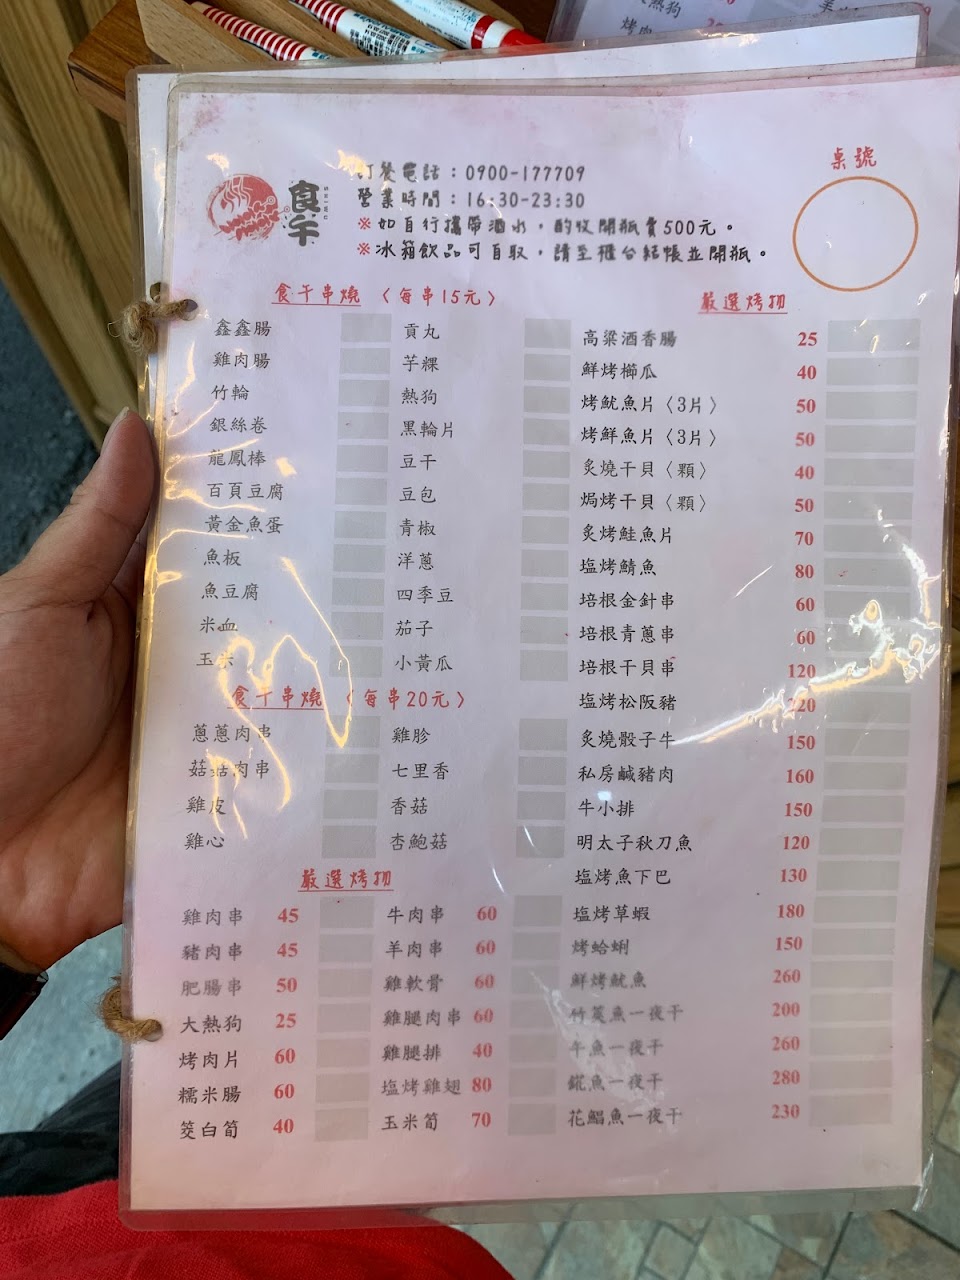 桌號
食午
訂餐電話：0900-177709
營業時間：16:30-23:30
※如自行攜帶酒水，酌收開瓶費500元。
※冰箱飲品可自取，請至櫃台結帳並開瓶。
食午串燒〈每串15元〉
鑫鑫腸 貢丸
雞肉腸 芋粿
竹輪 熱狗
銀絲卷 黑輪片
龍鳳棒 豆干
百頁豆腐 豆包
黃金魚蛋 青椒
魚板 洋蔥
魚豆腐 四季豆
米血 茄子
玉米 小黃瓜
食午串燒〈每串20元〉
蔥蔥肉串 雞胗
菇菇肉串 七里香
雞皮 香菇
雞心 杏鮑菇
嚴選烤物
雞肉串 45 牛肉串 60
豬肉串 45 羊肉串 60
肥腸串 50 雞軟骨 60
大熱狗 25 雞腿肉串 60
烤肉片 60 雞腿排 40
糯米腸 60 塩烤雞翅 80
筊白筍 40 玉米筍 70
嚴選烤物
高粱酒香腸 25
鮮烤櫛瓜 40
烤魷魚片〈3片〉 50
烤鮮魚片〈3片〉 50
炙燒干貝〈顆〉 40
焗烤干貝〈顆〉 50
炙烤鮭魚片 70
塩烤鯖魚 80
培根金針串 60
培根青蔥串 60
培根干貝串 120
塩烤松阪豬
炙燒骰子牛 150
私房鹹豬肉 160
牛小排 150
明太子秋刀魚 120
塩烤魚下巴 130
塩烤草蝦 180
烤蛤蜊 150
鮮烤魷魚 260
竹筴魚一夜干 200
午魚一夜干 260
䱵魚一夜干 280
花鯧魚一夜干 230